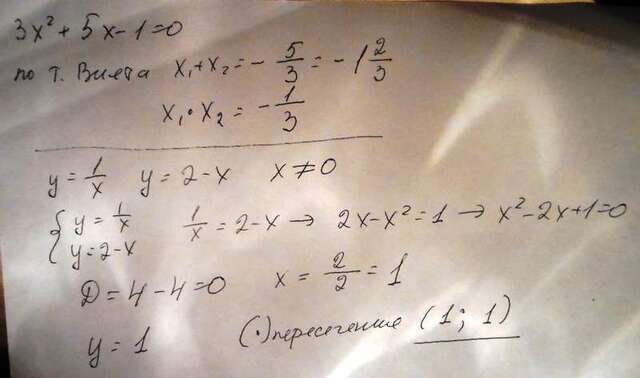 3x² + 5x - 1 = 0
по т. Виета x₁ + x₂ = - 5/3 = - 1 2/3
x₁ · x₂ = - 1/3
y = 1/x y = 2 - x x ≠ 0
{ y = 1/x 1/x = 2 - x → 2x - x² = 1 → x² - 2x + 1 = 0
y = 2 - x
D = 4 - 4 = 0 x = 2/2 = 1
y = 1 (·) пересечение (1; 1)